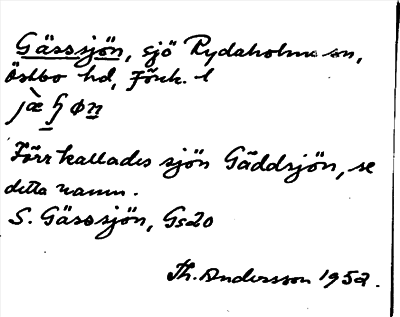 Gässsjön, sjö Rydaholms sn,
Östbo hd, Jönk. l
jæ̀ʃøn
Förr kallades sjön Gäddsjön, se
detta namn.
S. Gässsjön, Gs20
Th. Andersson 1952.